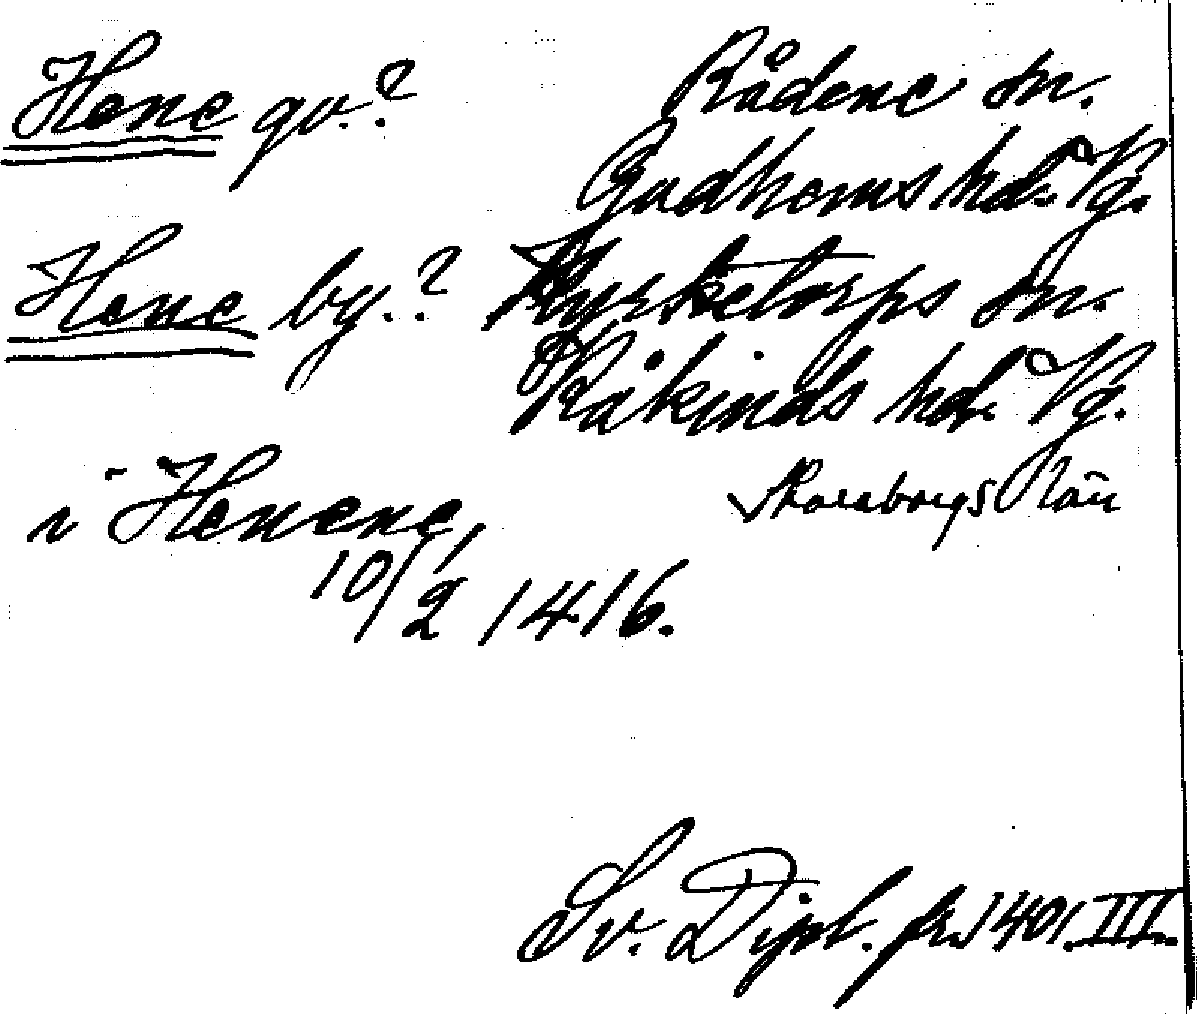 Hene gv.? Rådene sn.
Gudhems hd. Vg.
Hene by.? Kyrketorps sn.
Kåkinds hd. Vg.
Skaraborgs län
i Henene,
10/2 1416.
Sv. Dipl. fr. 1401 III.